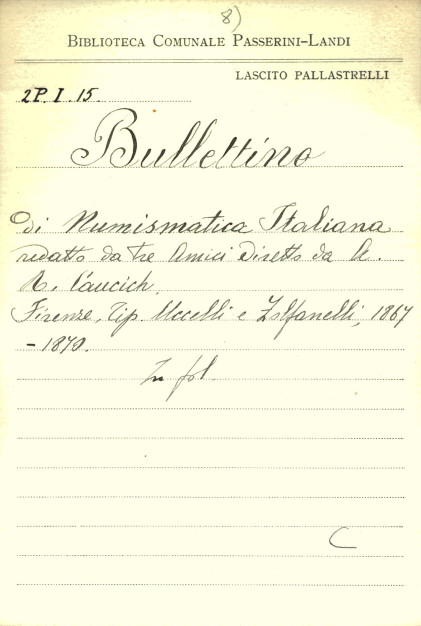 8)
BIBLIOTECA COMUNALE PASSERINI-LANDI
LASCITO PALLASTRELLI
2P. I. 15.
Bullettino
di Numismatica Italiana
redatto da tre Amici diretto da A.
R. Caucich.
Firenze, Tip. Mccelli e Zolfanelli, 1867
- 1870.
In fol.
C